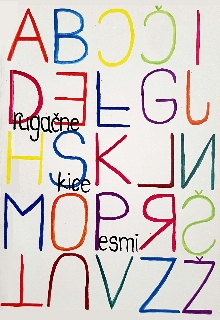 A B Ɔ Č I
D Ǝ Ł G U
rugačne
H S K ⅃ И
kice
M O P Я Š
esmi
⊥ U V Z Ž